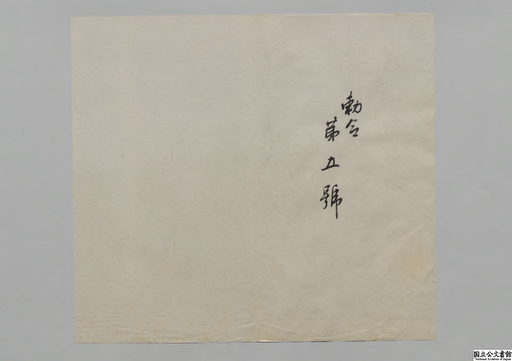 勅令
第五號
国立公文書館
National Archives of Japan